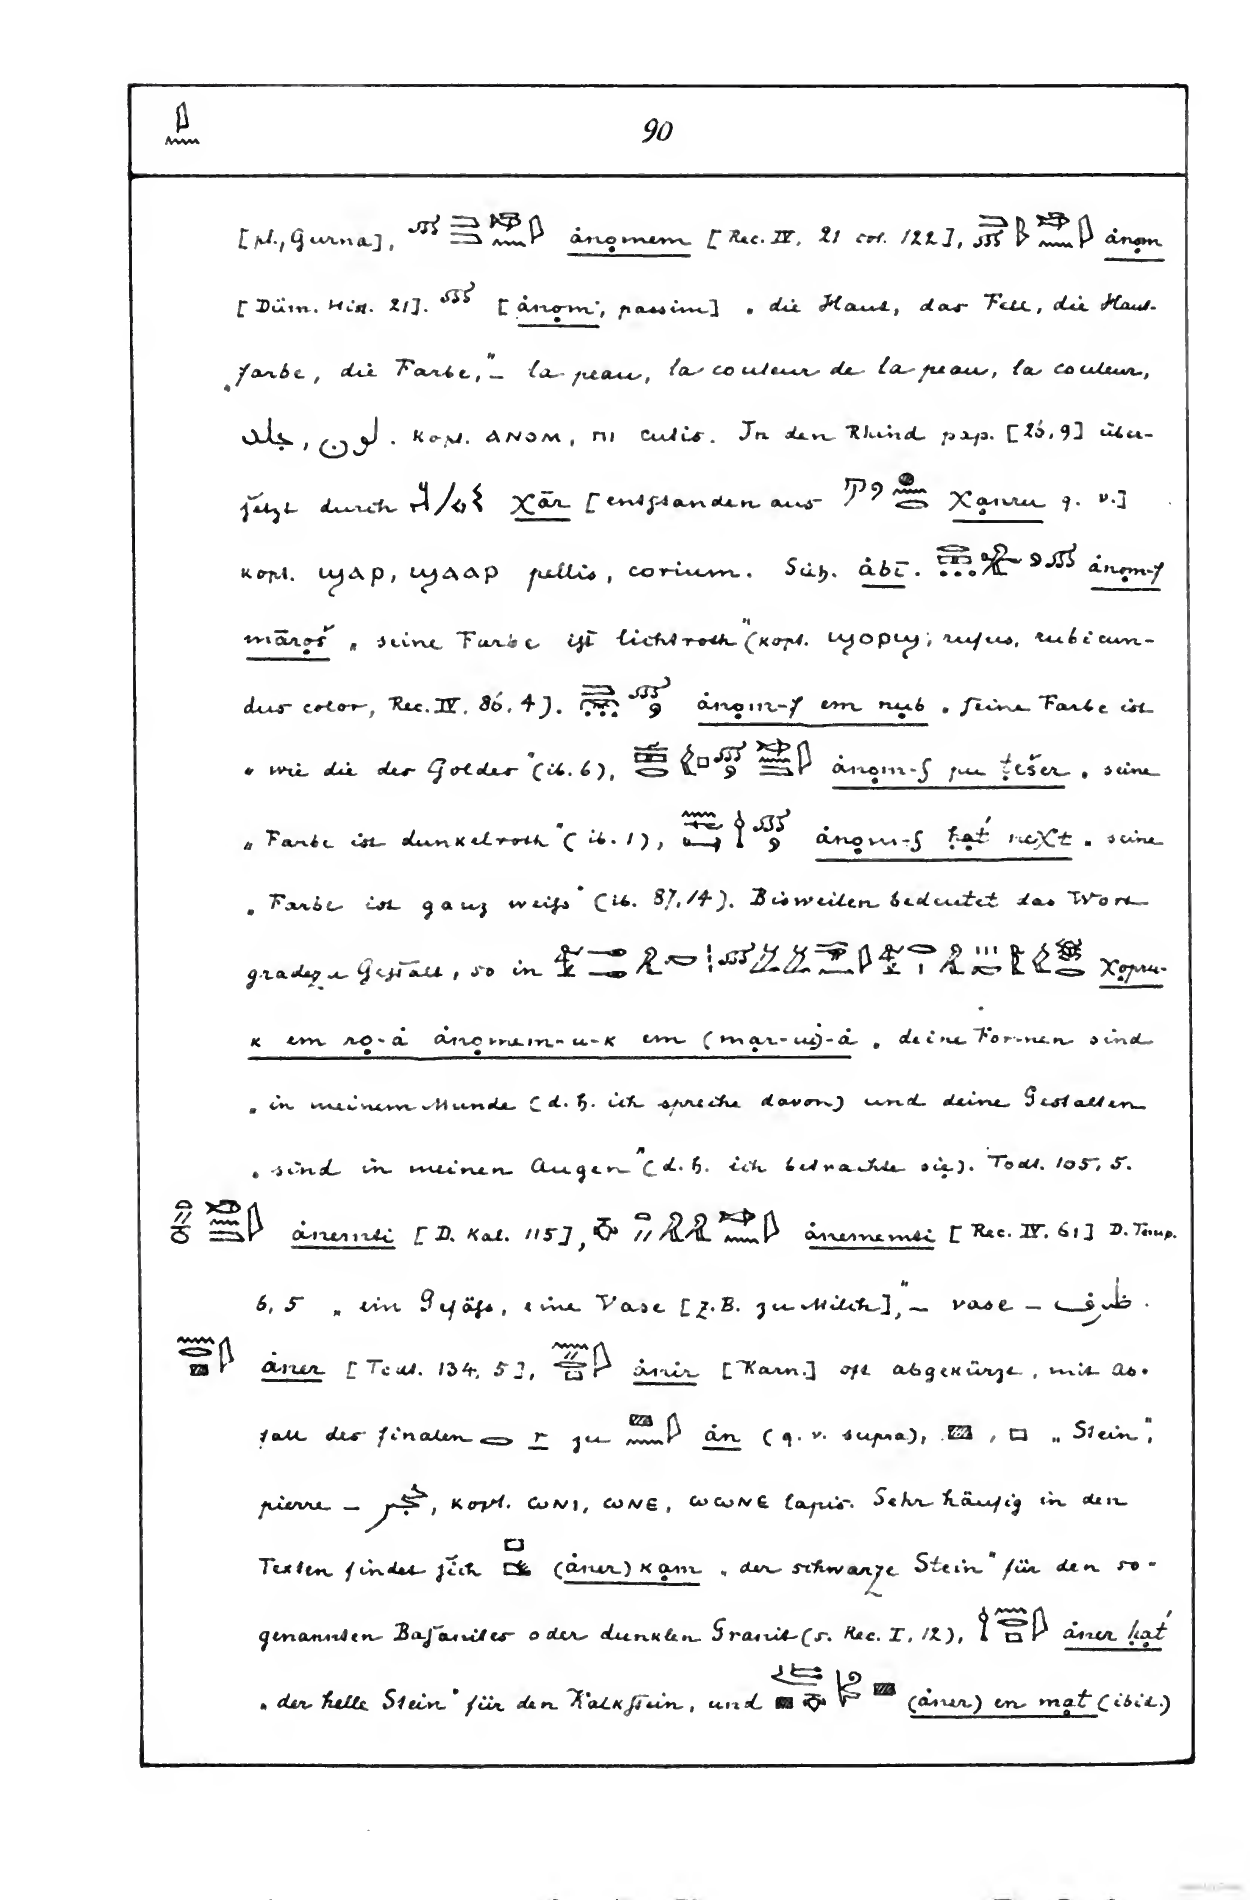 90
[pl., Gurna], ȧnọmem [Rec. IV, 21 col. 122], ȧnọm
[Düm. Hist. 21]. [ȧnọm, passim] „die Haut, das Fell, die Haut-
„farbe, die Farbe," – la peau, la couleur de la peau, la couleur,
جلد, لون. kopt. ⲀⲚⲞⲘ, ⲠⲒ cutis. In den Rhind pap. [ , 9] über-
setzt durch χār [entstanden aus χạnru q. v.]
kopt. ϢⲀⲢ, ϢⲀⲀⲢ pellis, corium. Süh. ȧbī. ȧnọm-f
mārọš „seine Farbe ist lichtroth" (kopt. ϢⲞⲢϢ, rufus, rubicun-
dus color, Rec. IV, 86, 4). ȧnọm-f em nụb „seine Farbe ist
„wie die des Goldes" (ib. 6), ȧnọm-f pu ṭešer „seine
„Farbe ist dunkelroth" (ib. 1), ȧnọm-f ḥạt́ neχt „seine
„Farbe ist ganz weiß" (ib. 87, 14). Bisweilen bedeutet das Wort
gradezu Gestalt, so in χọpru-
k em rọ-ȧ ȧnọmem-u-k em (mạr-ui)-ȧ „deine Formen sind
„in meinem Munde (d. h. ich spreche davon) und deine Gestalten
„sind in meinen Augen" (d. h. ich betrachte sie). Todt. 105, 5.
ȧnemti [D. Kal. 115], ȧnememti [Rec. IV. 61] D. Temp.
6, 5 „ein Gefäß, eine Vase [z. B. zu Milch]," – vase – ظرف.
ȧner [Todt. 134, 5], ȧnir [Karn.] oft abgekürzt, mit Ab-
fall des finalen r zu ȧn (q. v. supra), , „Stein",
pierre – حجر, kopt. ⲰⲚⲒ, ⲰⲚⲈ, ⲰⲰⲚⲈ lapis. Sehr häufig in den
Texten findet sich (ȧner) kạm „der schwarze Stein" für den so-
genannten Basanites oder dunklen Granit (s. Rec. I, 12), ȧner ḥạt́
„der helle Stein" für den Kalkstein, und (ȧner) en mạt (ibid.)